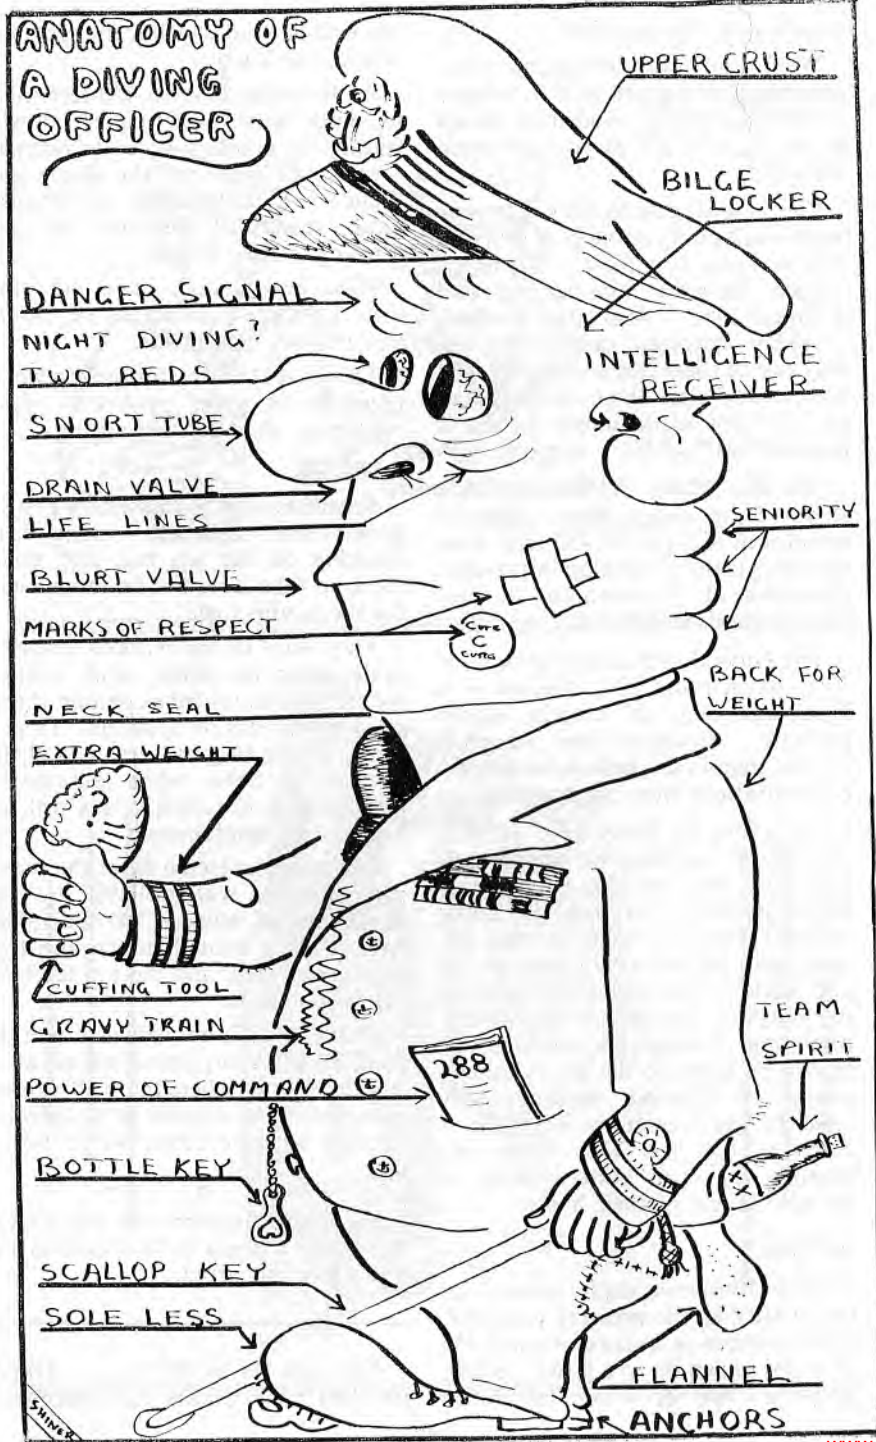 ANATOMY OF
A DIVING
OFFICER
UPPER CRUST
BILGE
LOCKER
DANGER SIGNAL
NIGHT DIVING?
TWO REDS
INTELLIGENCE
RECEIVER
SNORT TUBE
DRAIN VALVE
LIFE LINES
SENIORITY
BLURT VALVE
MARKS OF RESPECT
C
BACK FOR
WEIGHT
NECK SEAL
EXTRA WEIGHT
?
CUFFING TOOL
GRAVY TRAIN
TEAM
SPIRIT
288
POWER OF COMMAND
BOTTLE KEY
XX
SCALLOP KEY
SOLE LESS
FLANNEL
ANCHORS
SHINER